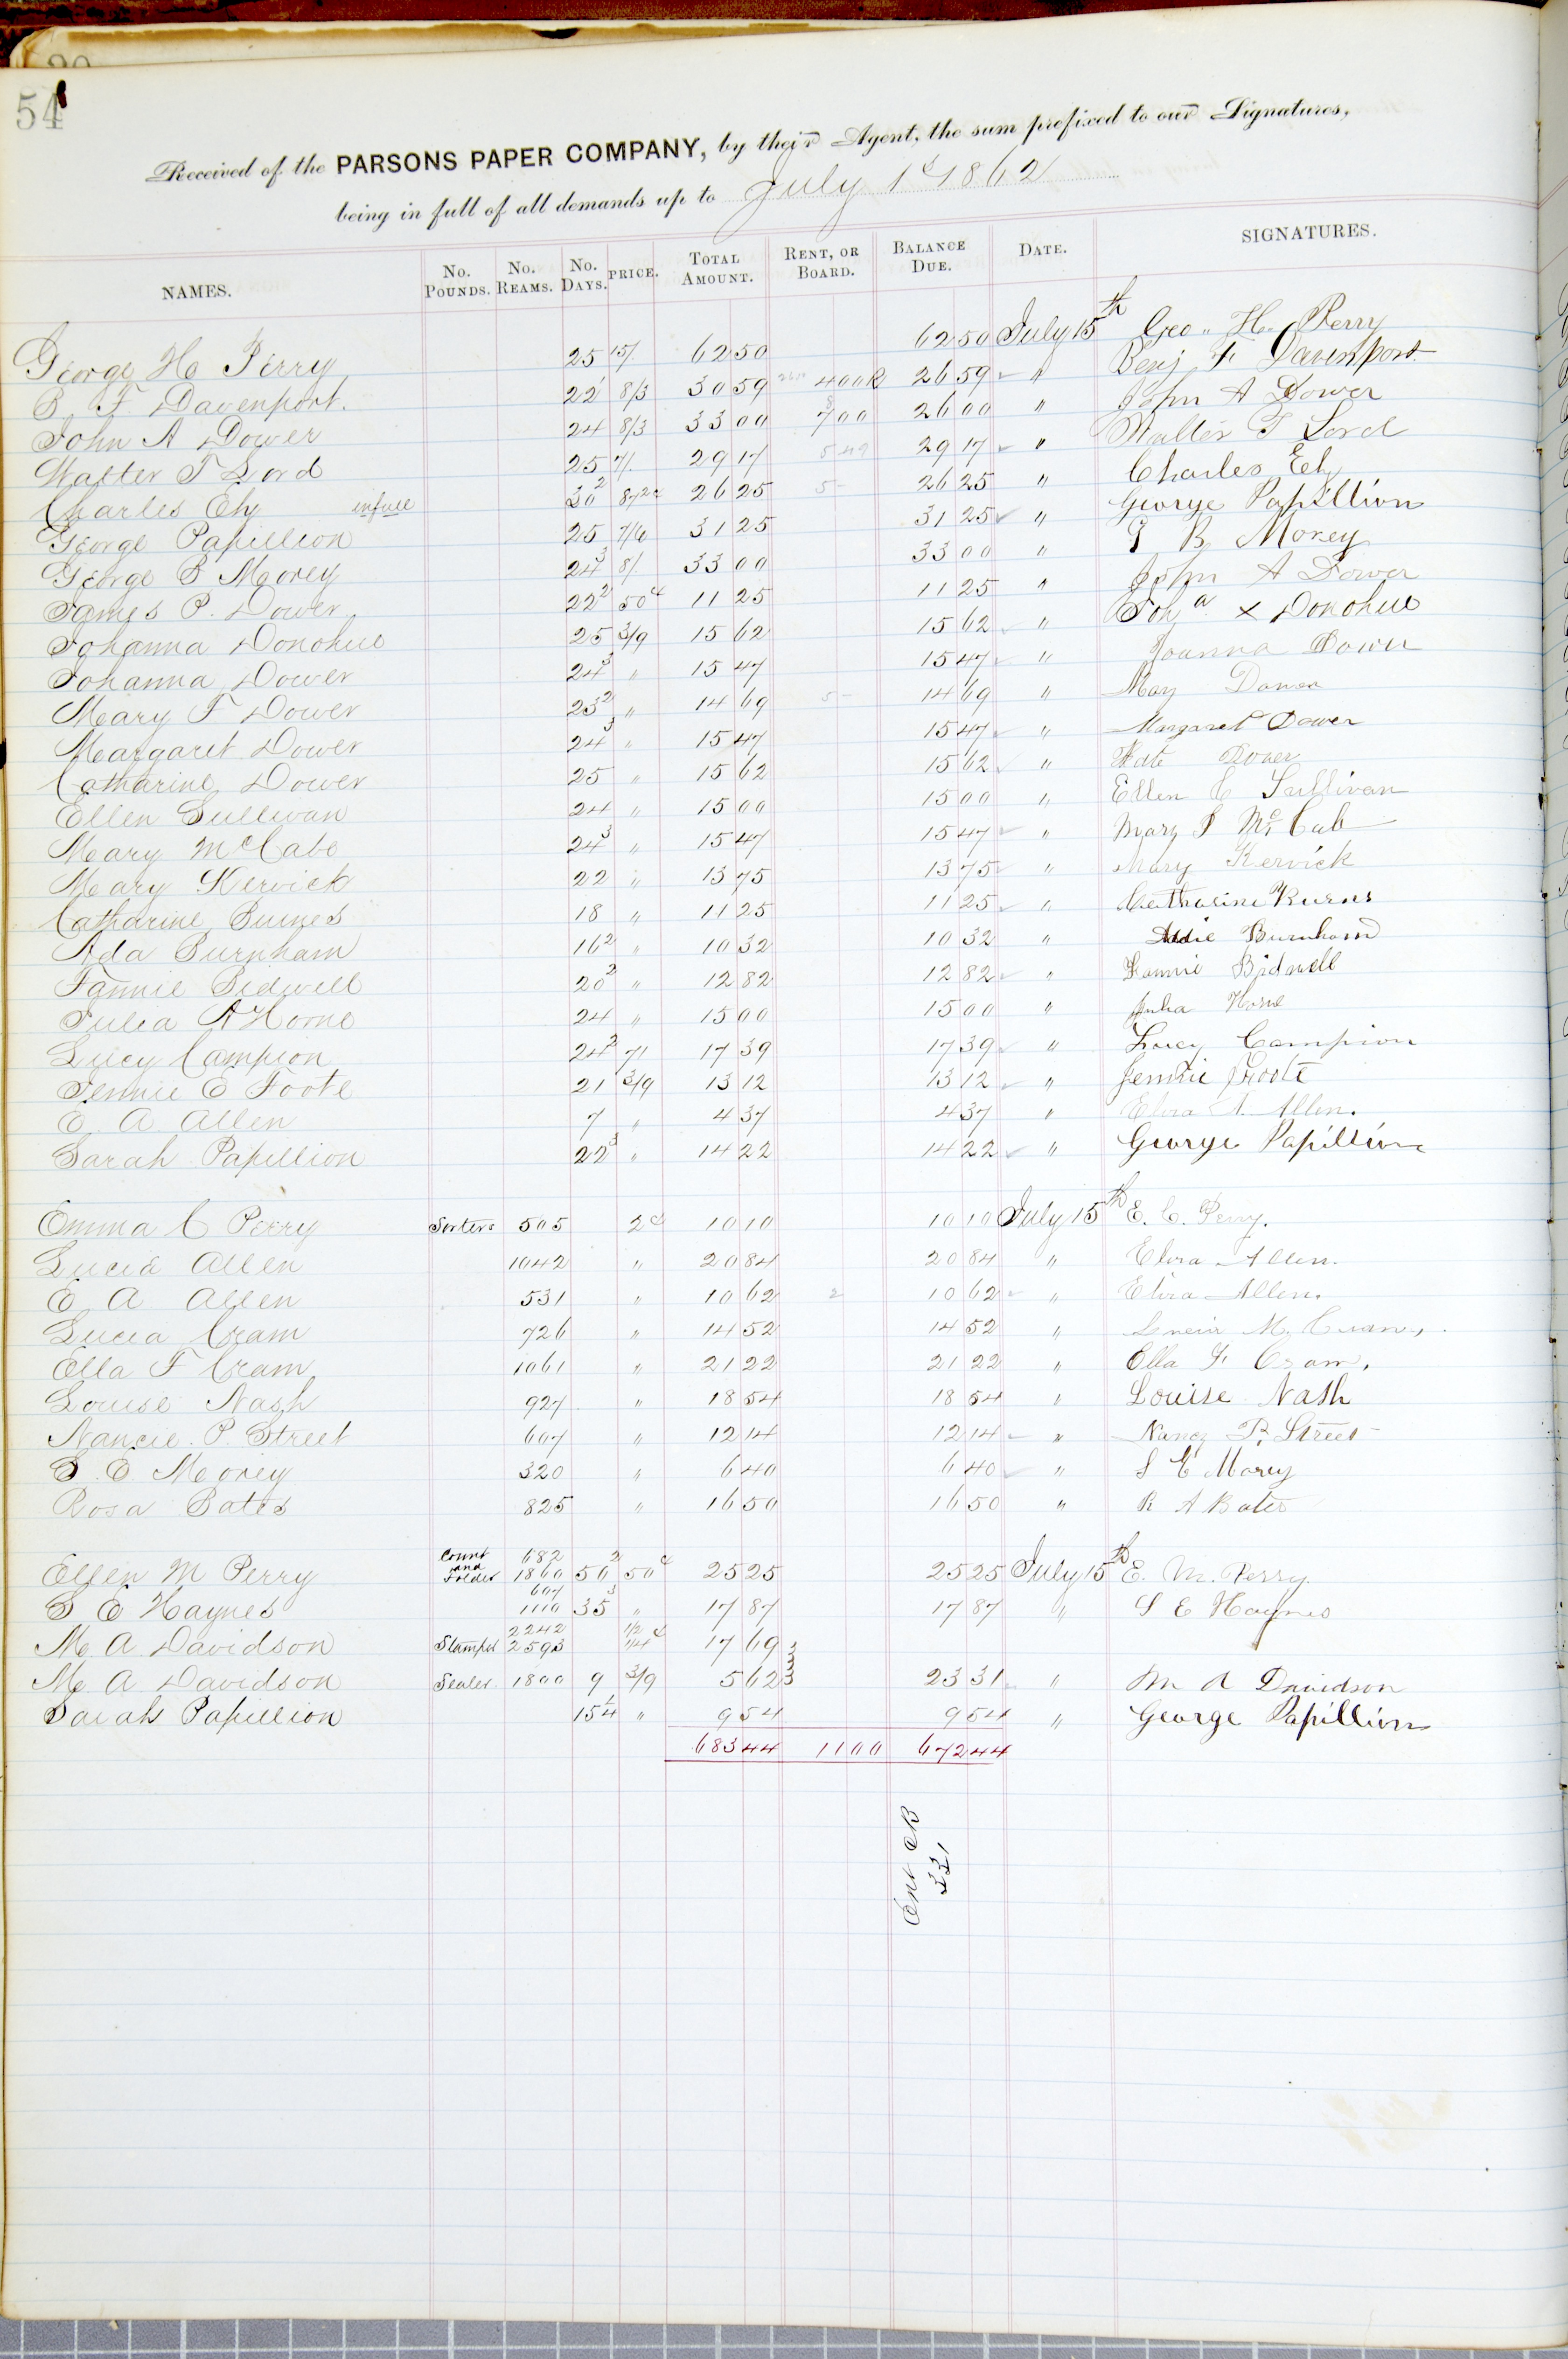 54
Received of the PARSONS PAPER COMPANY, by their Agent, the sum prefixed to our Signatures,
being in full of all demands up to July 1st 1862
NAMES. No. POUNDS. No. REAMS. No. DAYS. PRICE. TOTAL AMOUNT. RENT, OR BOARD. BALANCE DUE. DATE. SIGNATURES.
George H Perry 25 15/ 62 50 62 50 July 15th Geo. H. Perry
B F Davenport. 22 8/3 30 59 4 00 R 26 59 " Benj F Davenport
John A Dower 24 8/3 33 00 7 00 26 00 " John A Dower
Walter T Lord 25 7/ 29 17 5 49 29 17 " Walter T Lord
Charles Ely in full 30 2 87 2c 26 25 5- 26 25 " Charles Ely
George Papillion 25 7/6 31 25 31 25 " George Papillion
George B Morey 24 3 8/ 33 00 33 00 " G B Morey
James P. Dower 22 2 50 c 11 25 11 25 " John A Dower
Johanna Donohue 25 3/9 15 62 15 62 " Joh a x Donohue
Johanna Dower 24 3 " 15 47 15 47 " Joanna Dower
Mary F Dower 23 2 " 14 69 5- 14 69 " Mary Dower
Margaret Dower 24 3 " 15 47 15 47 " Margaret Dower
Catharine Dower 25 " 15 62 15 62 " Kate Dower
Ellen Sullivan 24 " 15 00 15 00 " Ellen E Sullivan
Mary McCabe 24 3 " 15 47 15 47 " Mary J McCab
Mary Kervick 22 " 13 75 13 75 " Mary Kervick
Catharine Burnes 18 " 11 25 11 25 " Catharine Burns
Ada Burnham 16 2 " 10 32 10 32 " Addie Burnham
Fannie Bidwell 20 2 " 12 82 12 82 " Fannie Bidwell
Julia A Horne 24 " 15 00 15 00 " Julia Horne
Lucy Campion 24 2 7/ 17 39 17 39 " Lucy Campion
Jennie E Foote 21 3/9 13 12 13 12 " Jennie Foote
E A Allen 7 " 4 37 4 37 " Elvira A. Allen.
Sarah Papillion 22 3 " 14 22 14 22 " George Papillion
Emma C Perry Sorters 505 2 c 10 10 10 10 July 15th E. C. Perry.
Lucia Allen 1042 " 20 84 20 84 " Elvira Allen.
E A Allen 531 " 10 62 2 10 62 " Elvira Allen.
Lucia Cram 726 " 14 52 14 52 " Lucia M. Cram.
Ella F Cram 1061 " 21 22 21 22 " Ella F. Cram.
Louise Nash 927 " 18 54 18 54 " Louise Nash
Nancie P. Street 607 " 12 14 12 14 " Nancy P. Street
S. E Morey 320 " 6 40 6 40 " S E Morey
Rosa Bates 825 " 16 50 16 50 " R A Bates
Ellen M Perry Count and Folder 682 1860 50 2 50 c 25 25 25 25 July 15th E. M. Perry.
S E Haynes 607 1110 35 3 " 17 87 17 87 " S E Haynes
M A Davidson Stamper 2242 2593 1/2 1/4 c 17 69
M A Davidson Sealer 1800 9 3/9 5 62 23 31 " M A Davidson
Sarah Papillion 15 1/4 " 9 54 9 54 " George Papillion
683 44 11 00 672 44
Ent CB
331